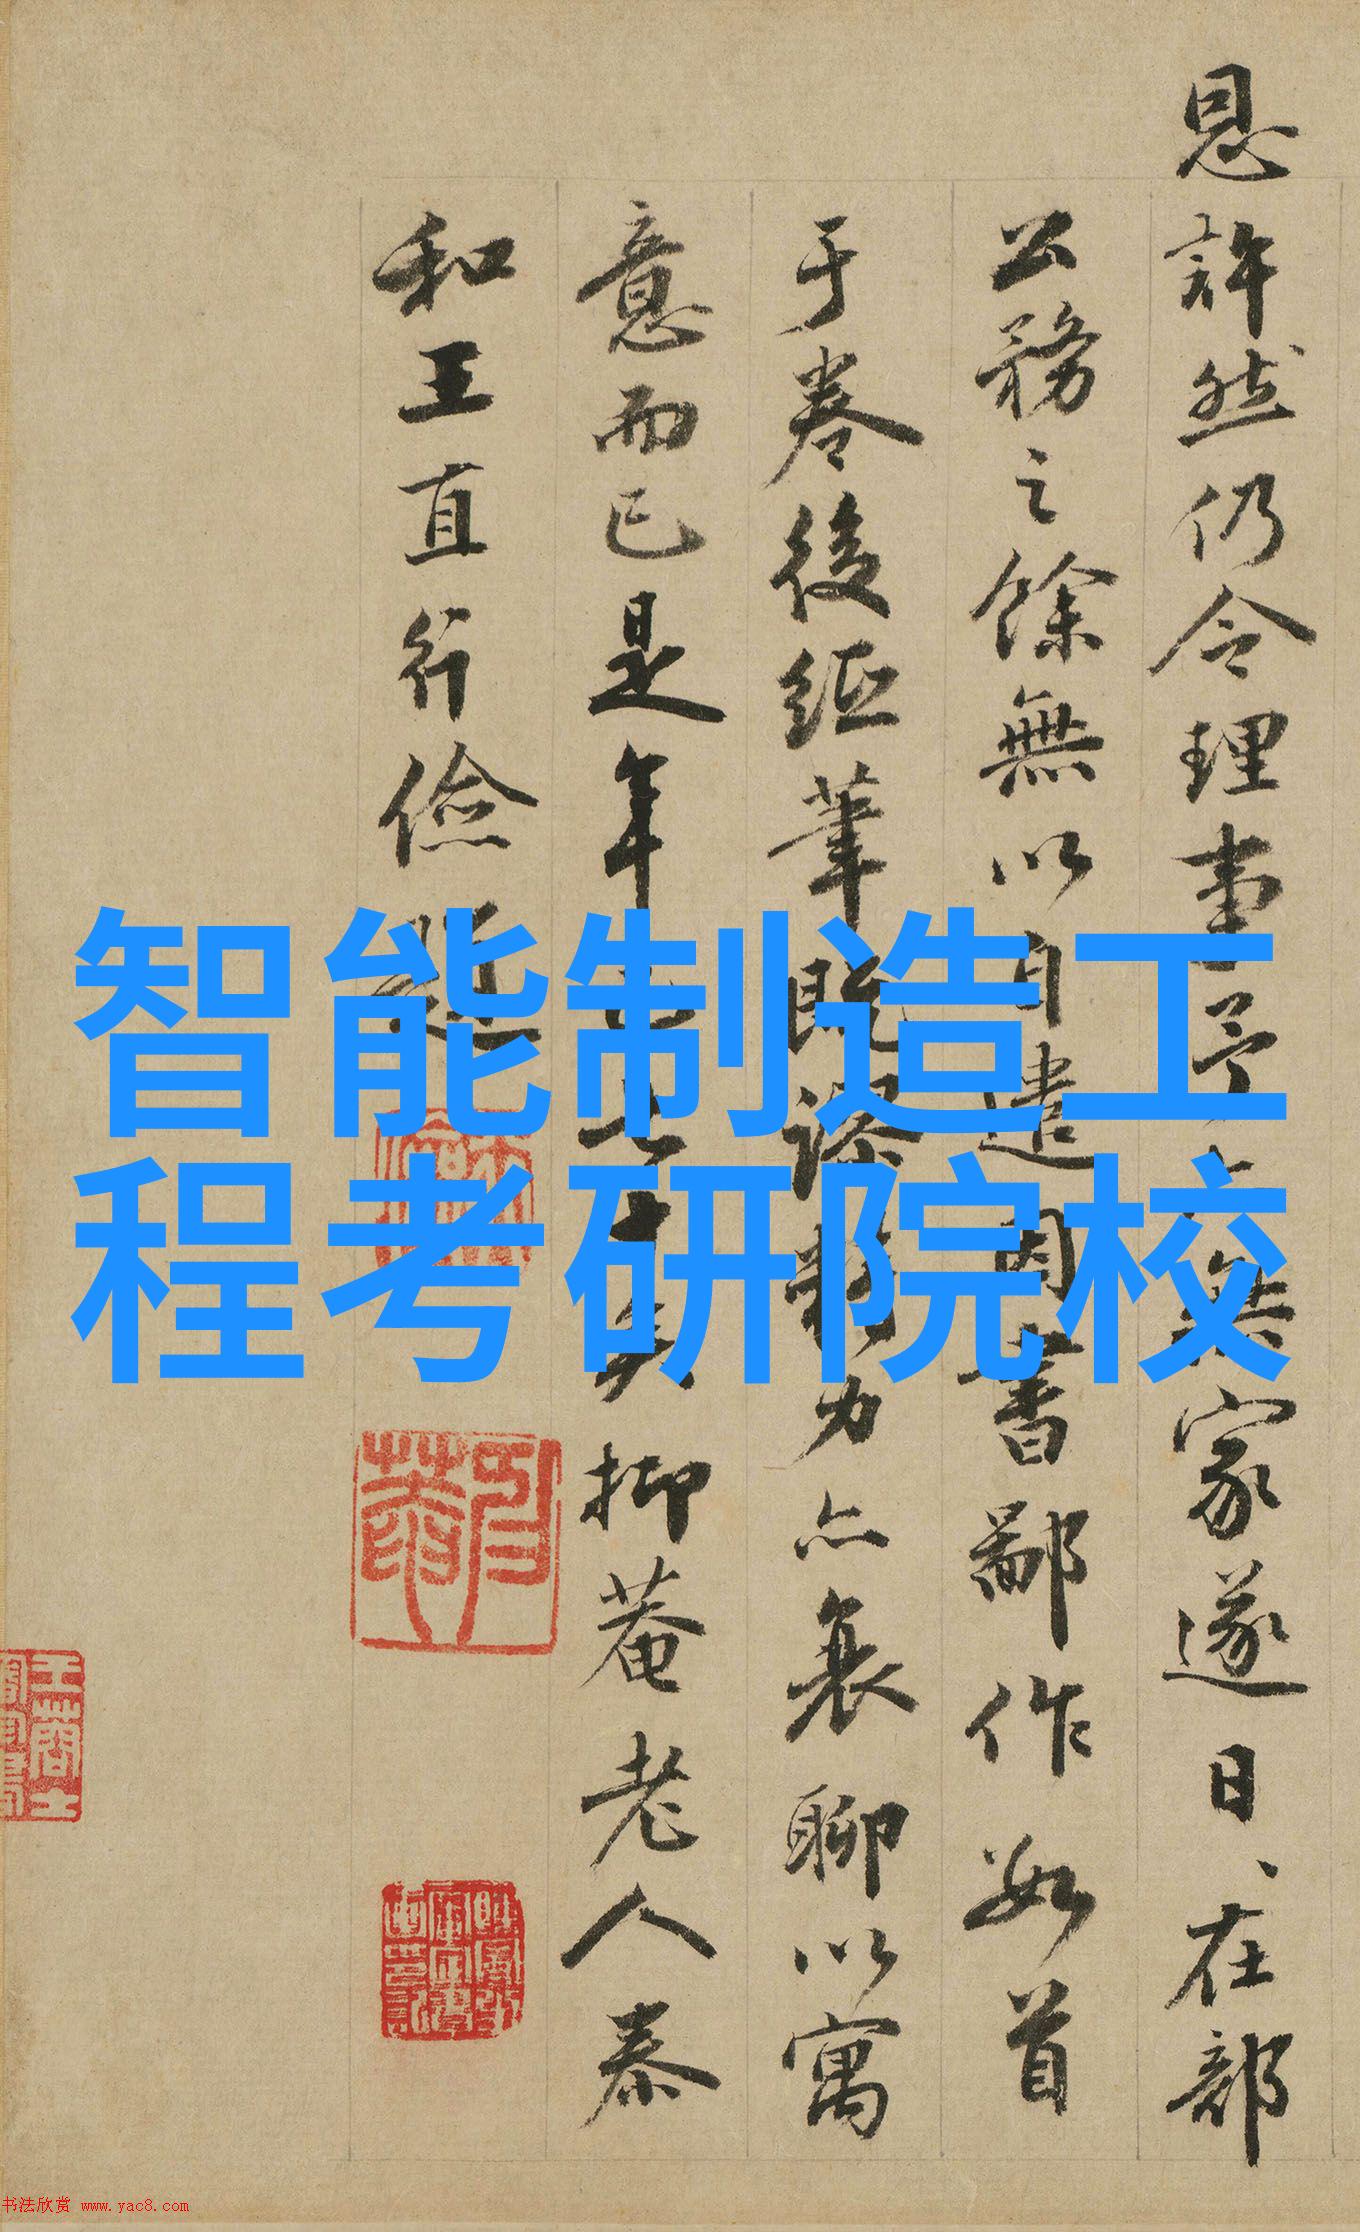 恩許然仍令理事予
家遂日、在部
公務之餘無以自遣因書鄙作數首
于卷後經筆既
力亦衰聊以寓
意而已是年七十
矣抑菴老人泰
和王直行儉題
智能制造工
程考研院校
书法欣赏 www.yac8.com